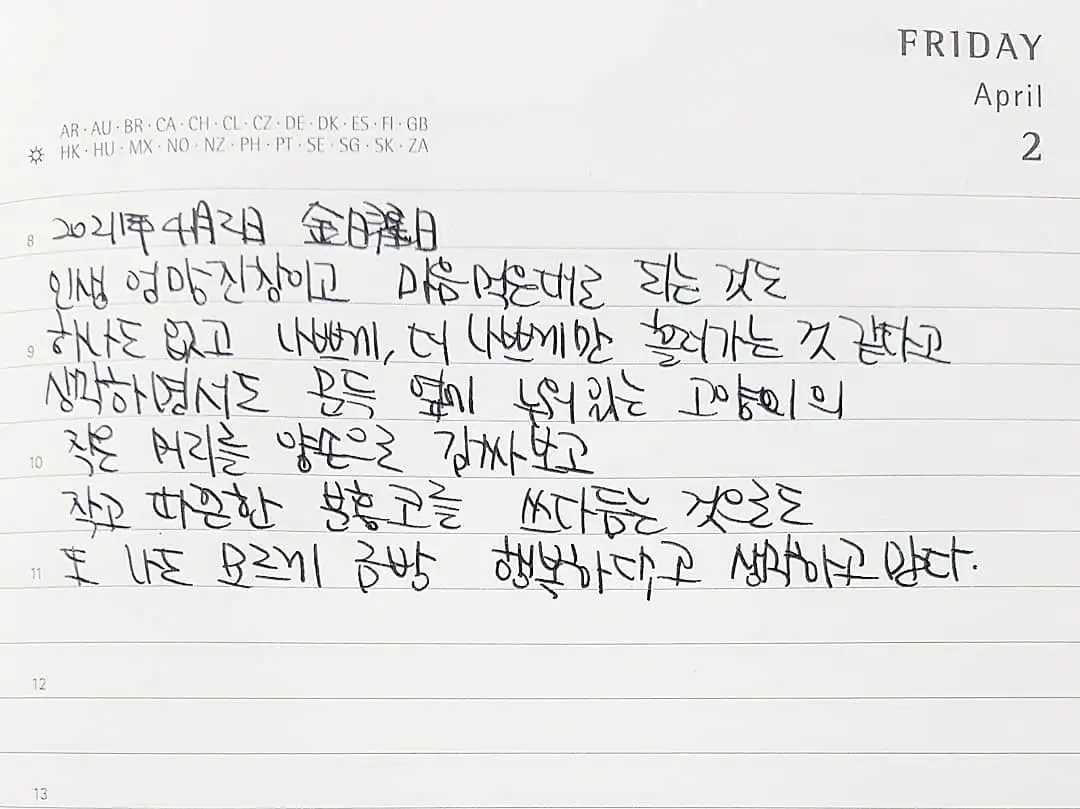 FRIDAY
April
2
AR · AU · BR · CA · CH · CL · CZ · DE · DK · ES · FI · GB
HK · HU · MX · NO · NZ · PH · PT · SE · SG · SK · ZA
8 2021年 4月2日 金曜日
인생 엉망진창이고 마음먹은대로 되는 것도
9 하나도 없고 나쁘게, 더 나쁘게만 흘러가는 것 같다고
생각하면서도 문득 옆에 누워있는 고양이의
10 작은 머리를 양손으로 감싸보고
작고 따끈한 분홍코를 쓰다듬는 것으로도
11 또 나도 모르게 금방 행복하다고 생각하고 만다.
12
13